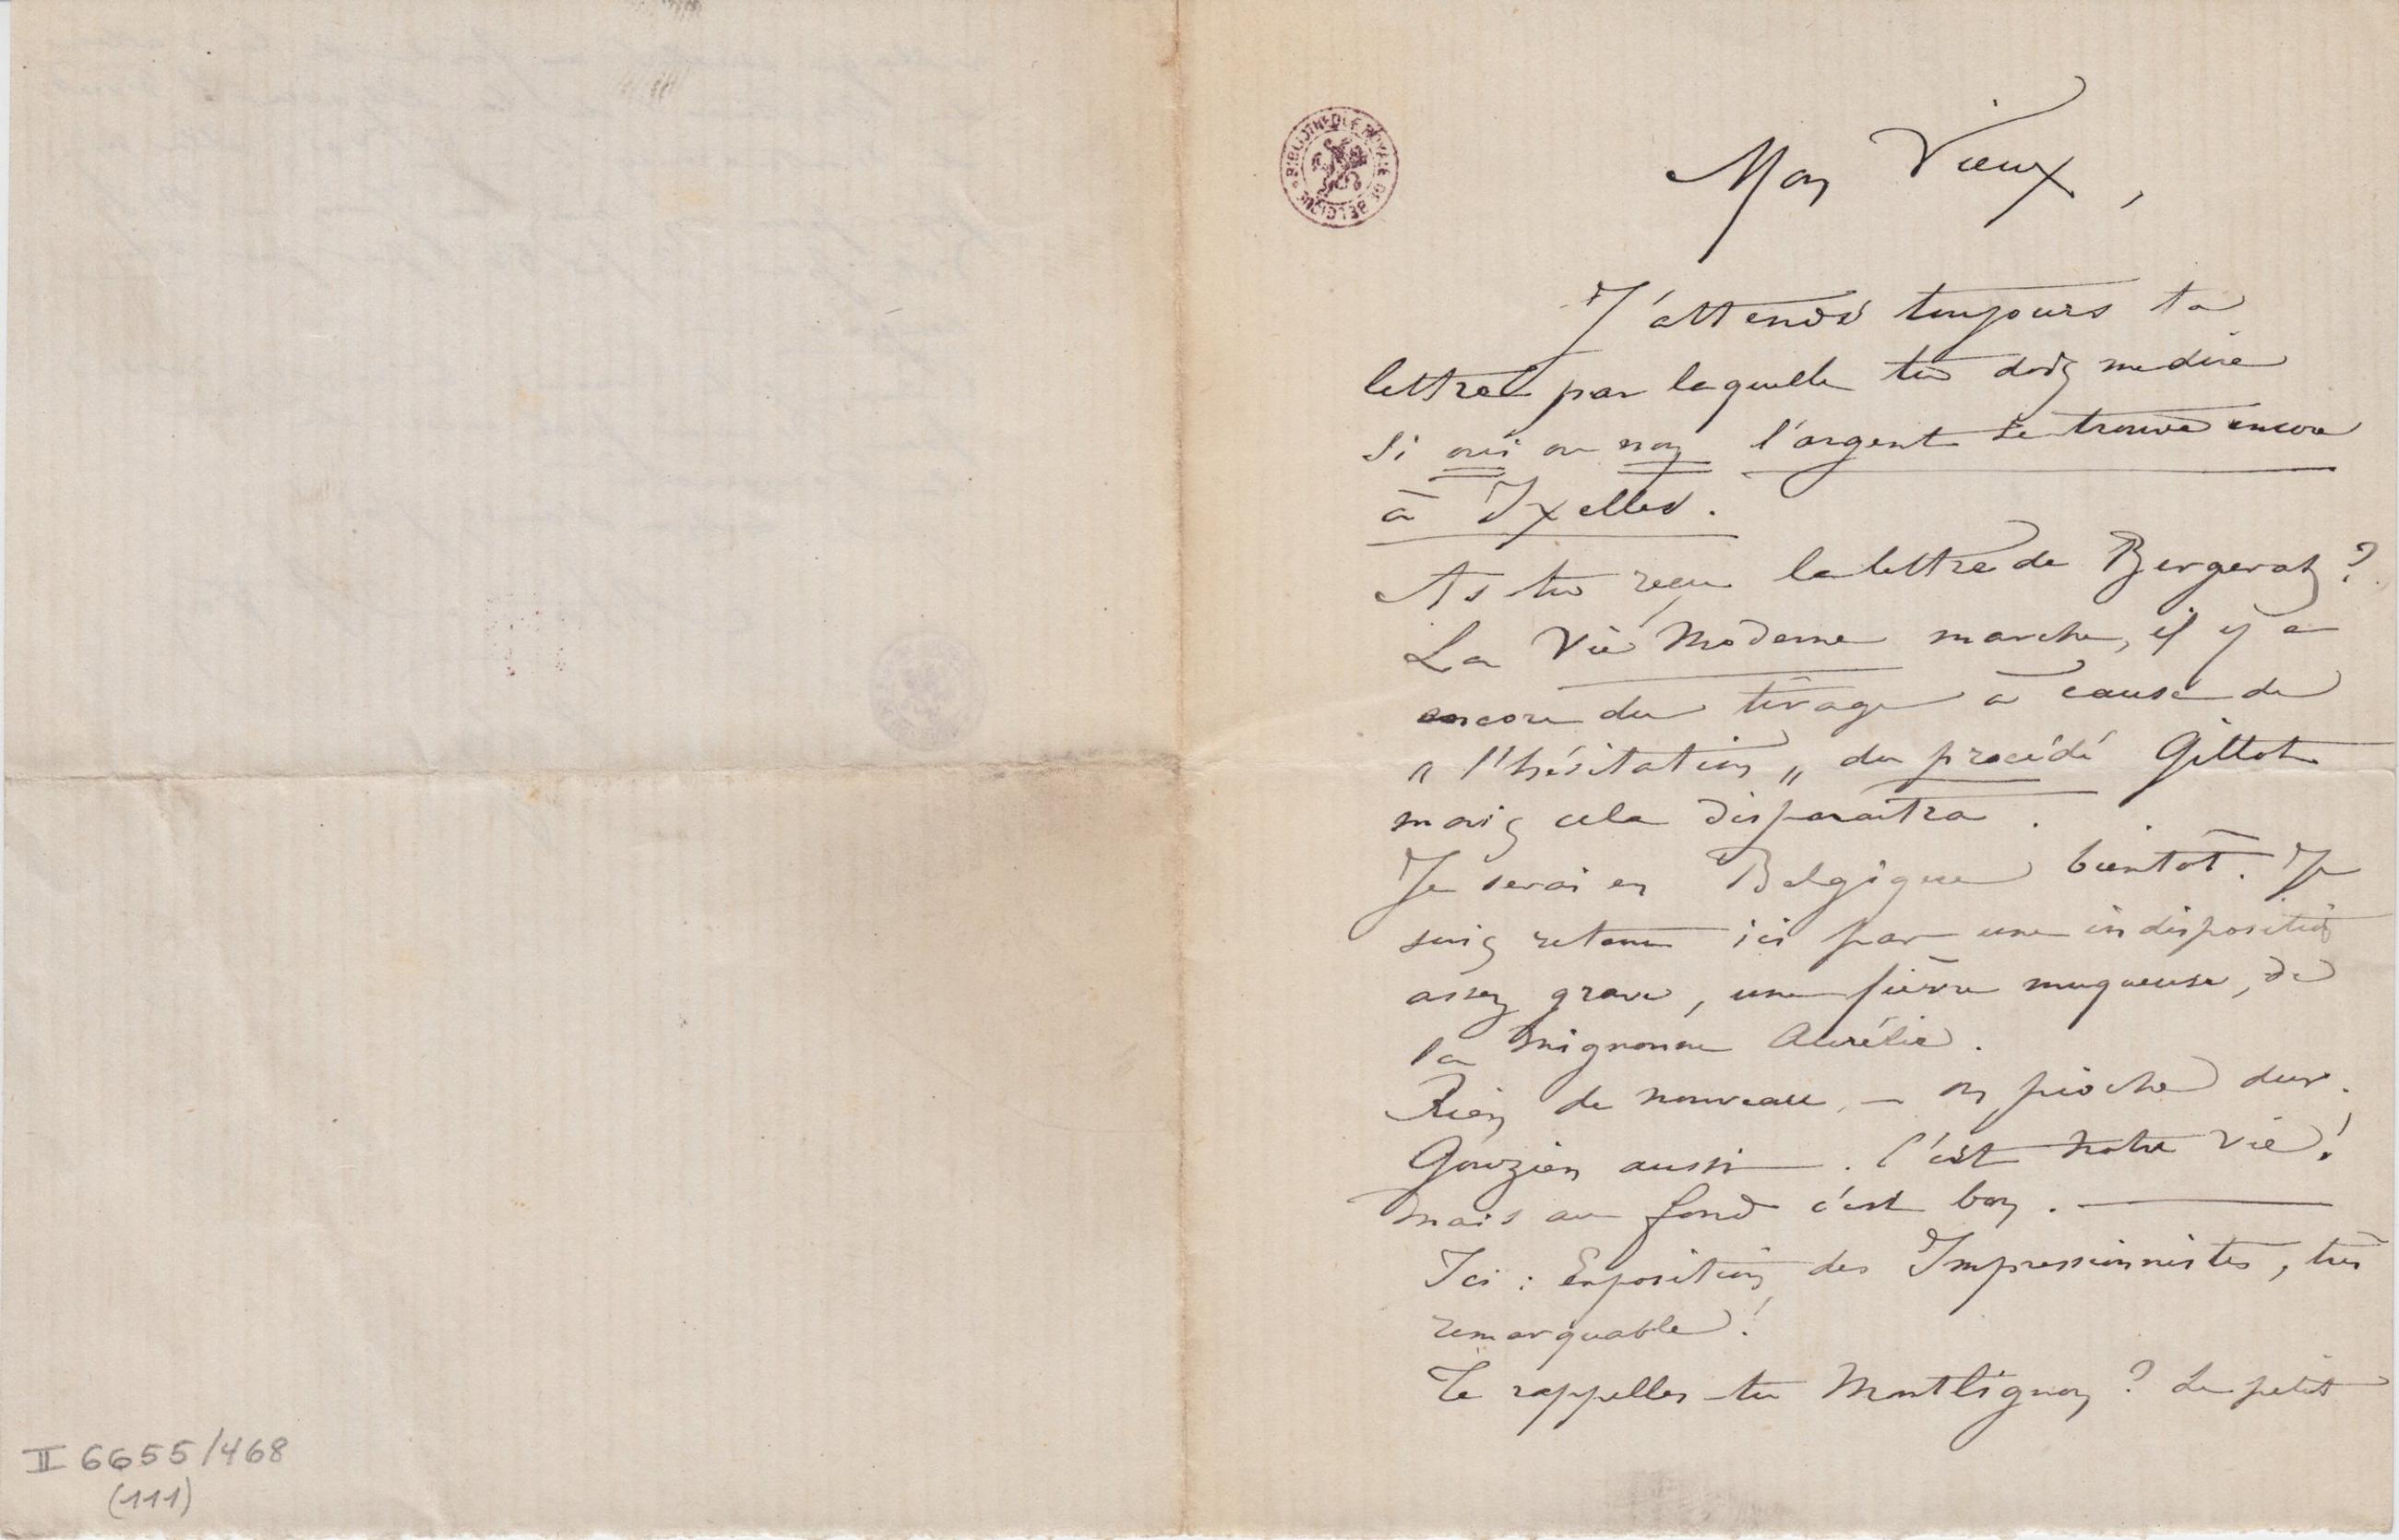 II 6655/468
(111)
BIBLIOTHEQUE ROYALE DE BELGIQUE
Mon Vieux,
J'attends toujours ta
lettre par laquelle tu dois me dire
si oui ou non l'argent se trouve encore
à Ixelles.
As tu reçu la lettre de Bergerat ?
La Vie Moderne marche, il y a
encore du tirage à cause de
« l'hésitation » du procédé Gillot
mais cela disparaitra.
Je serai en Belgique bientôt. Je
suis retenu ici par une indisposition
assez grave, une fièvre muqueuse, de
la mignonne Aurélie.
Rien de nouveau, — on pioche dur.
Gouzien aussi. C'est notre vie !
Mais au fond c'est bon. —
Ici : Exposition des Impressionnistes, très
remarquable !
Te rappelles-tu Montlignon ? Le petit